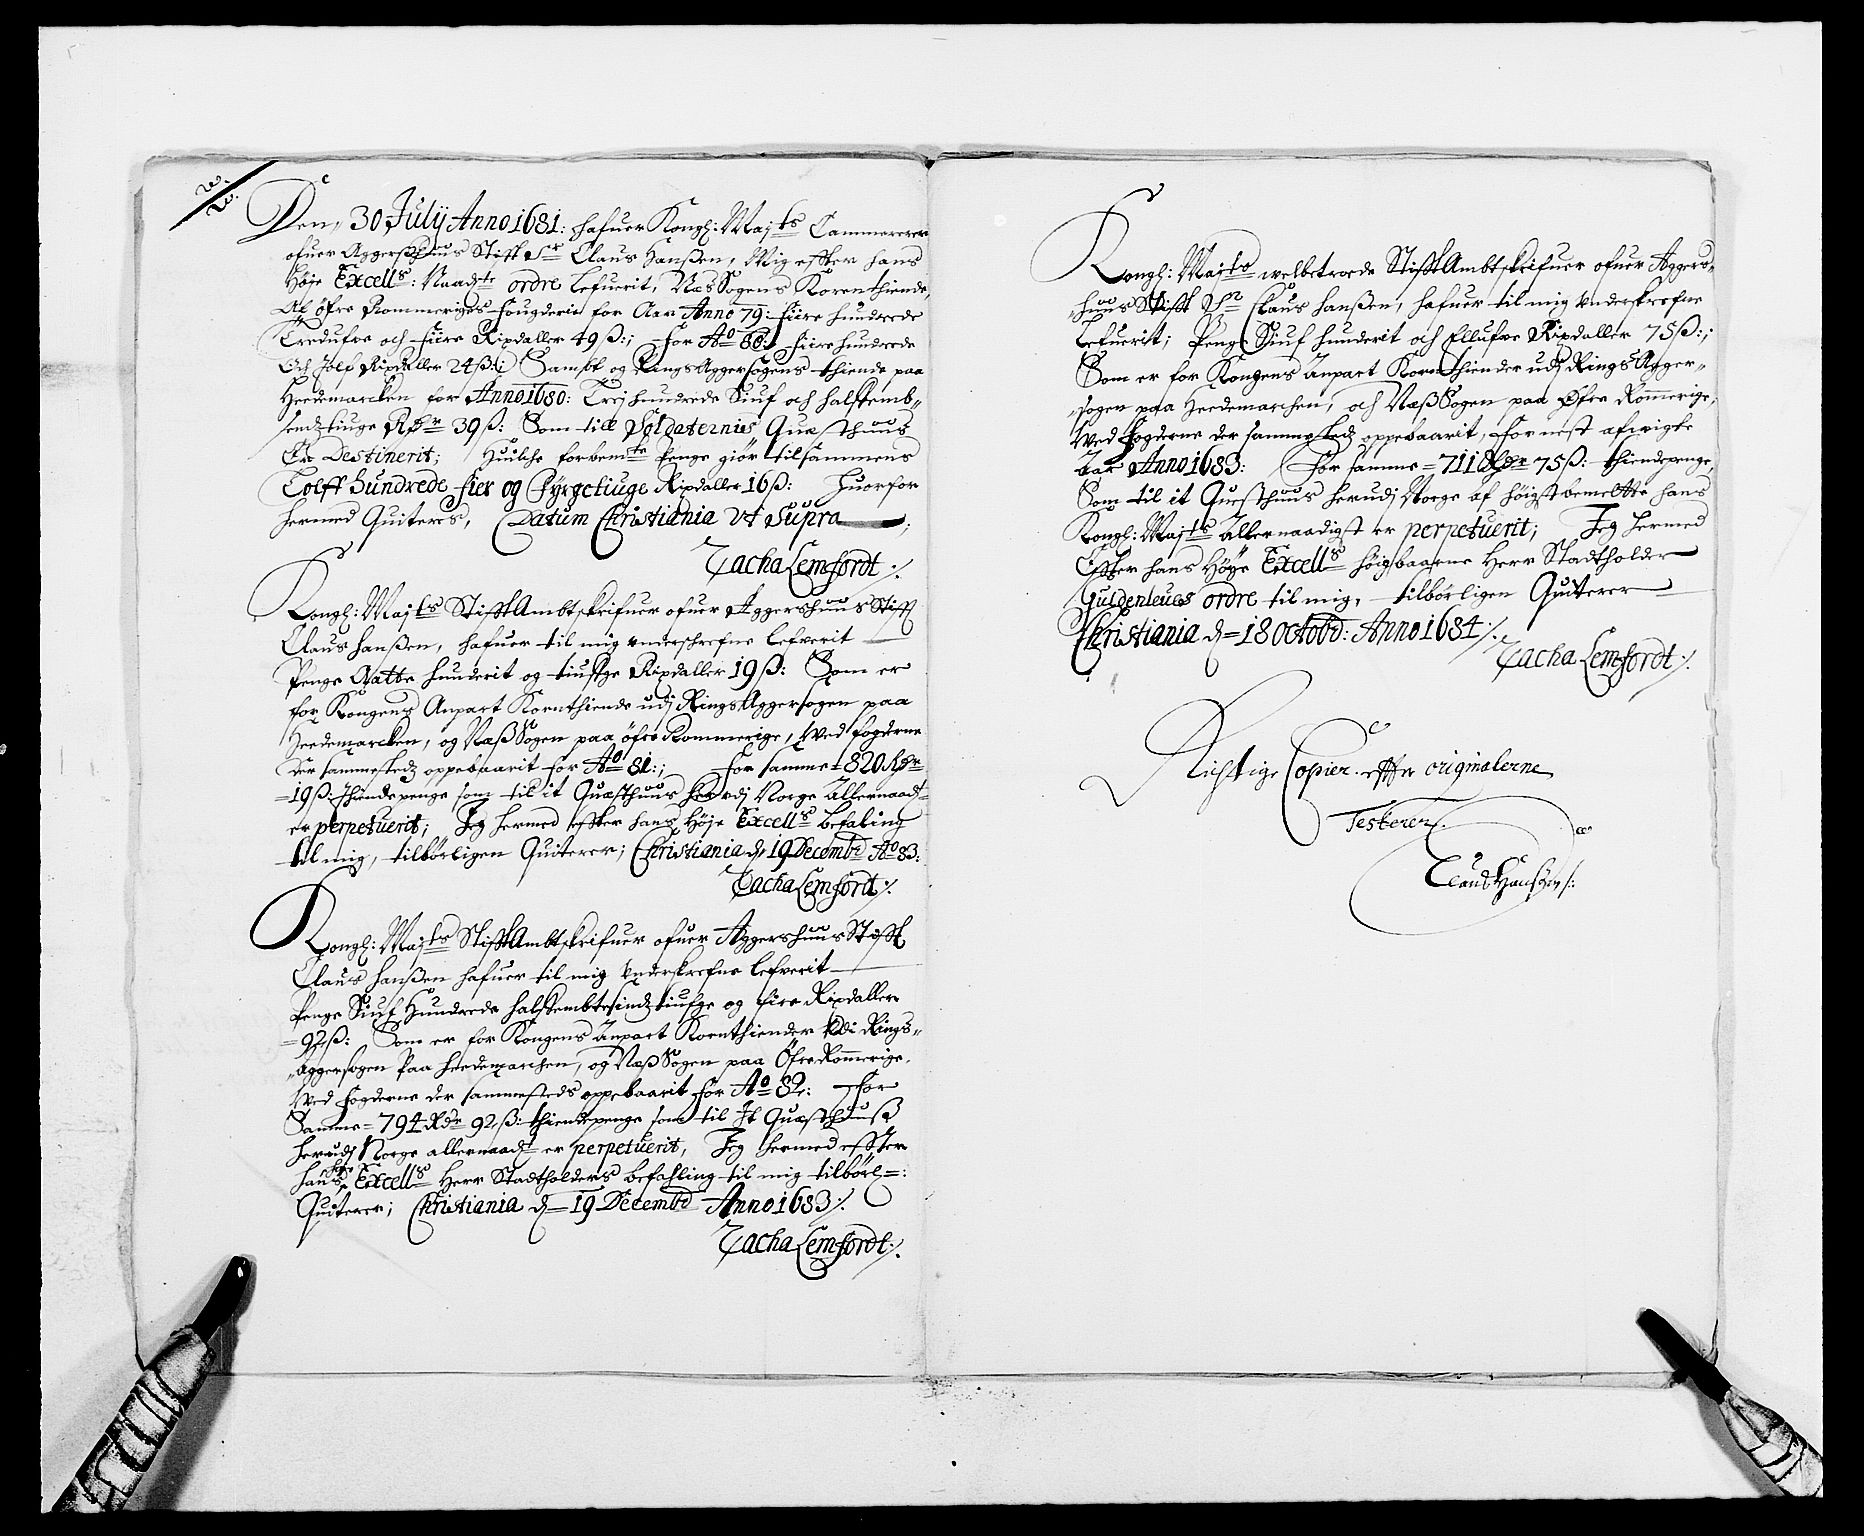 Den 30 Julij Anno 1681: hafuer Kongl: Majts Cammererer
ofuer Aggershuus Stift Sr Claus Hanßen, Mig efter hans
Höje Excells: Naadste ordre Lefuerit, Næs Sogens Kornthiende,
Af öfre Rommeriges fougderie for Aar Anno 79: fiire hundrede
Tredufve och fiire Rixdaller 49 ß:; for Ao 80: fiire hundrede
Och Jolf Rixdaller 24 ß:; Samt og Rings Aggersogens thiende paa
Heedemarcken for Anno 1680: Trej hundrede Siuf och halftemb„
sindtiuge Rdr 39 ß: Som till Soldaternes Quæsthuus
Er Destinerit; Huilche forbemte Penge giör tilsammens
Tolff Hundrede fier og fyrgetiuge Rixdaller 16 ß: Huorfor
hermed Quiteres, Datum Christiania Vt Supra
Zacha Lemfordt ./.
Kongl: Majts Stifft Ambtskrifuer ofuer Aggershuus Stifft
Claus Hanßen, hafuer til mig underschrefne Lefverit
Penge Aatte hunderit og tiufge Rixdaller 19 ß: Som er
for Kongens Anpart Kornthiende udj Rings Aggersogen paa
Heedemarcken, og Næß Sogen paa öfre Rommerige, Wed fogderne
der sammestedz oppebaarit for Ao 81:; For samme 820 Rdr
19 ß: thiendepenge som til it Quæsthuus her udj Norge Allernaadt
er perpetuerit; Jeg hermed effter hans Höje Excells befaling
til mig, tilbörligen Quiterer; Christiania d. 19 Decembr Ao 83:
Zacha Lemfordt ./.
Kongl: Majts Stifft Ambtskrifuer ofuer Aggershuus Stifft
Claus Hanßen hafuer til mig Underskrefne Lefverit
Penge Siuf Hundrede halftembtesindztiufge og fire Rixdaller
92 ß: Som er for Kongens Anpart Kornthiender Udi Rings„
„Aggersogen Paa Heedemarchen, og Næß Sogen paa Öfre Romerige,
Wed fogderne der sammesteds oppebaarit för Ao 82: For
Samme 794 Rdr 92 ß: thiendepenge som til Jt Quæsthuuß
herudj Norge allernaadt er perpetuerit, Jeg hermed effter
hans höje Excells Herr Stadtholders befahling til mig tilbörl:
Quiterer; Christiania d 19 Decembr Anno 1683 ./.
Zacha Lemfordt ./.
Kongl: Majts welbetroede Stifft Ambtskrifuer ofuer Aggers„
„huus Stifft Sr Claus Hanßen, hafuer til mig Underskrefne
Lefuerit; Penge Siuf hunderit och Ellufve Rixdaller 75 ß:;
Som er for Kongens Anpart Kornthiender udj Rings Agger„
„sogen paa Heedemarchen, och Næß Sogen paa Öfre Römerige,
Wed fogderne der sammestedz oppebaarit, for nest afwigte
Aar Anno 1683: For samme 711 Rdr 75 ß: thiendepenge,
Som til it Quæsthuus herudj Norge af höigstbemelte hans
Kongl: Majts Allernaadigst er perpetuerit; Jeg hermed
Effter hans Höye Excells höigbaarne Herr Stadtholder
Guldenleues ordre til mig, tilbörligen Quiterer
Christiania d 18 octobr: Anno 1684 ./.
Zacha Lemfordt ./.
Richtige Copier effter originalerne
Testerer
Claus Hanßen